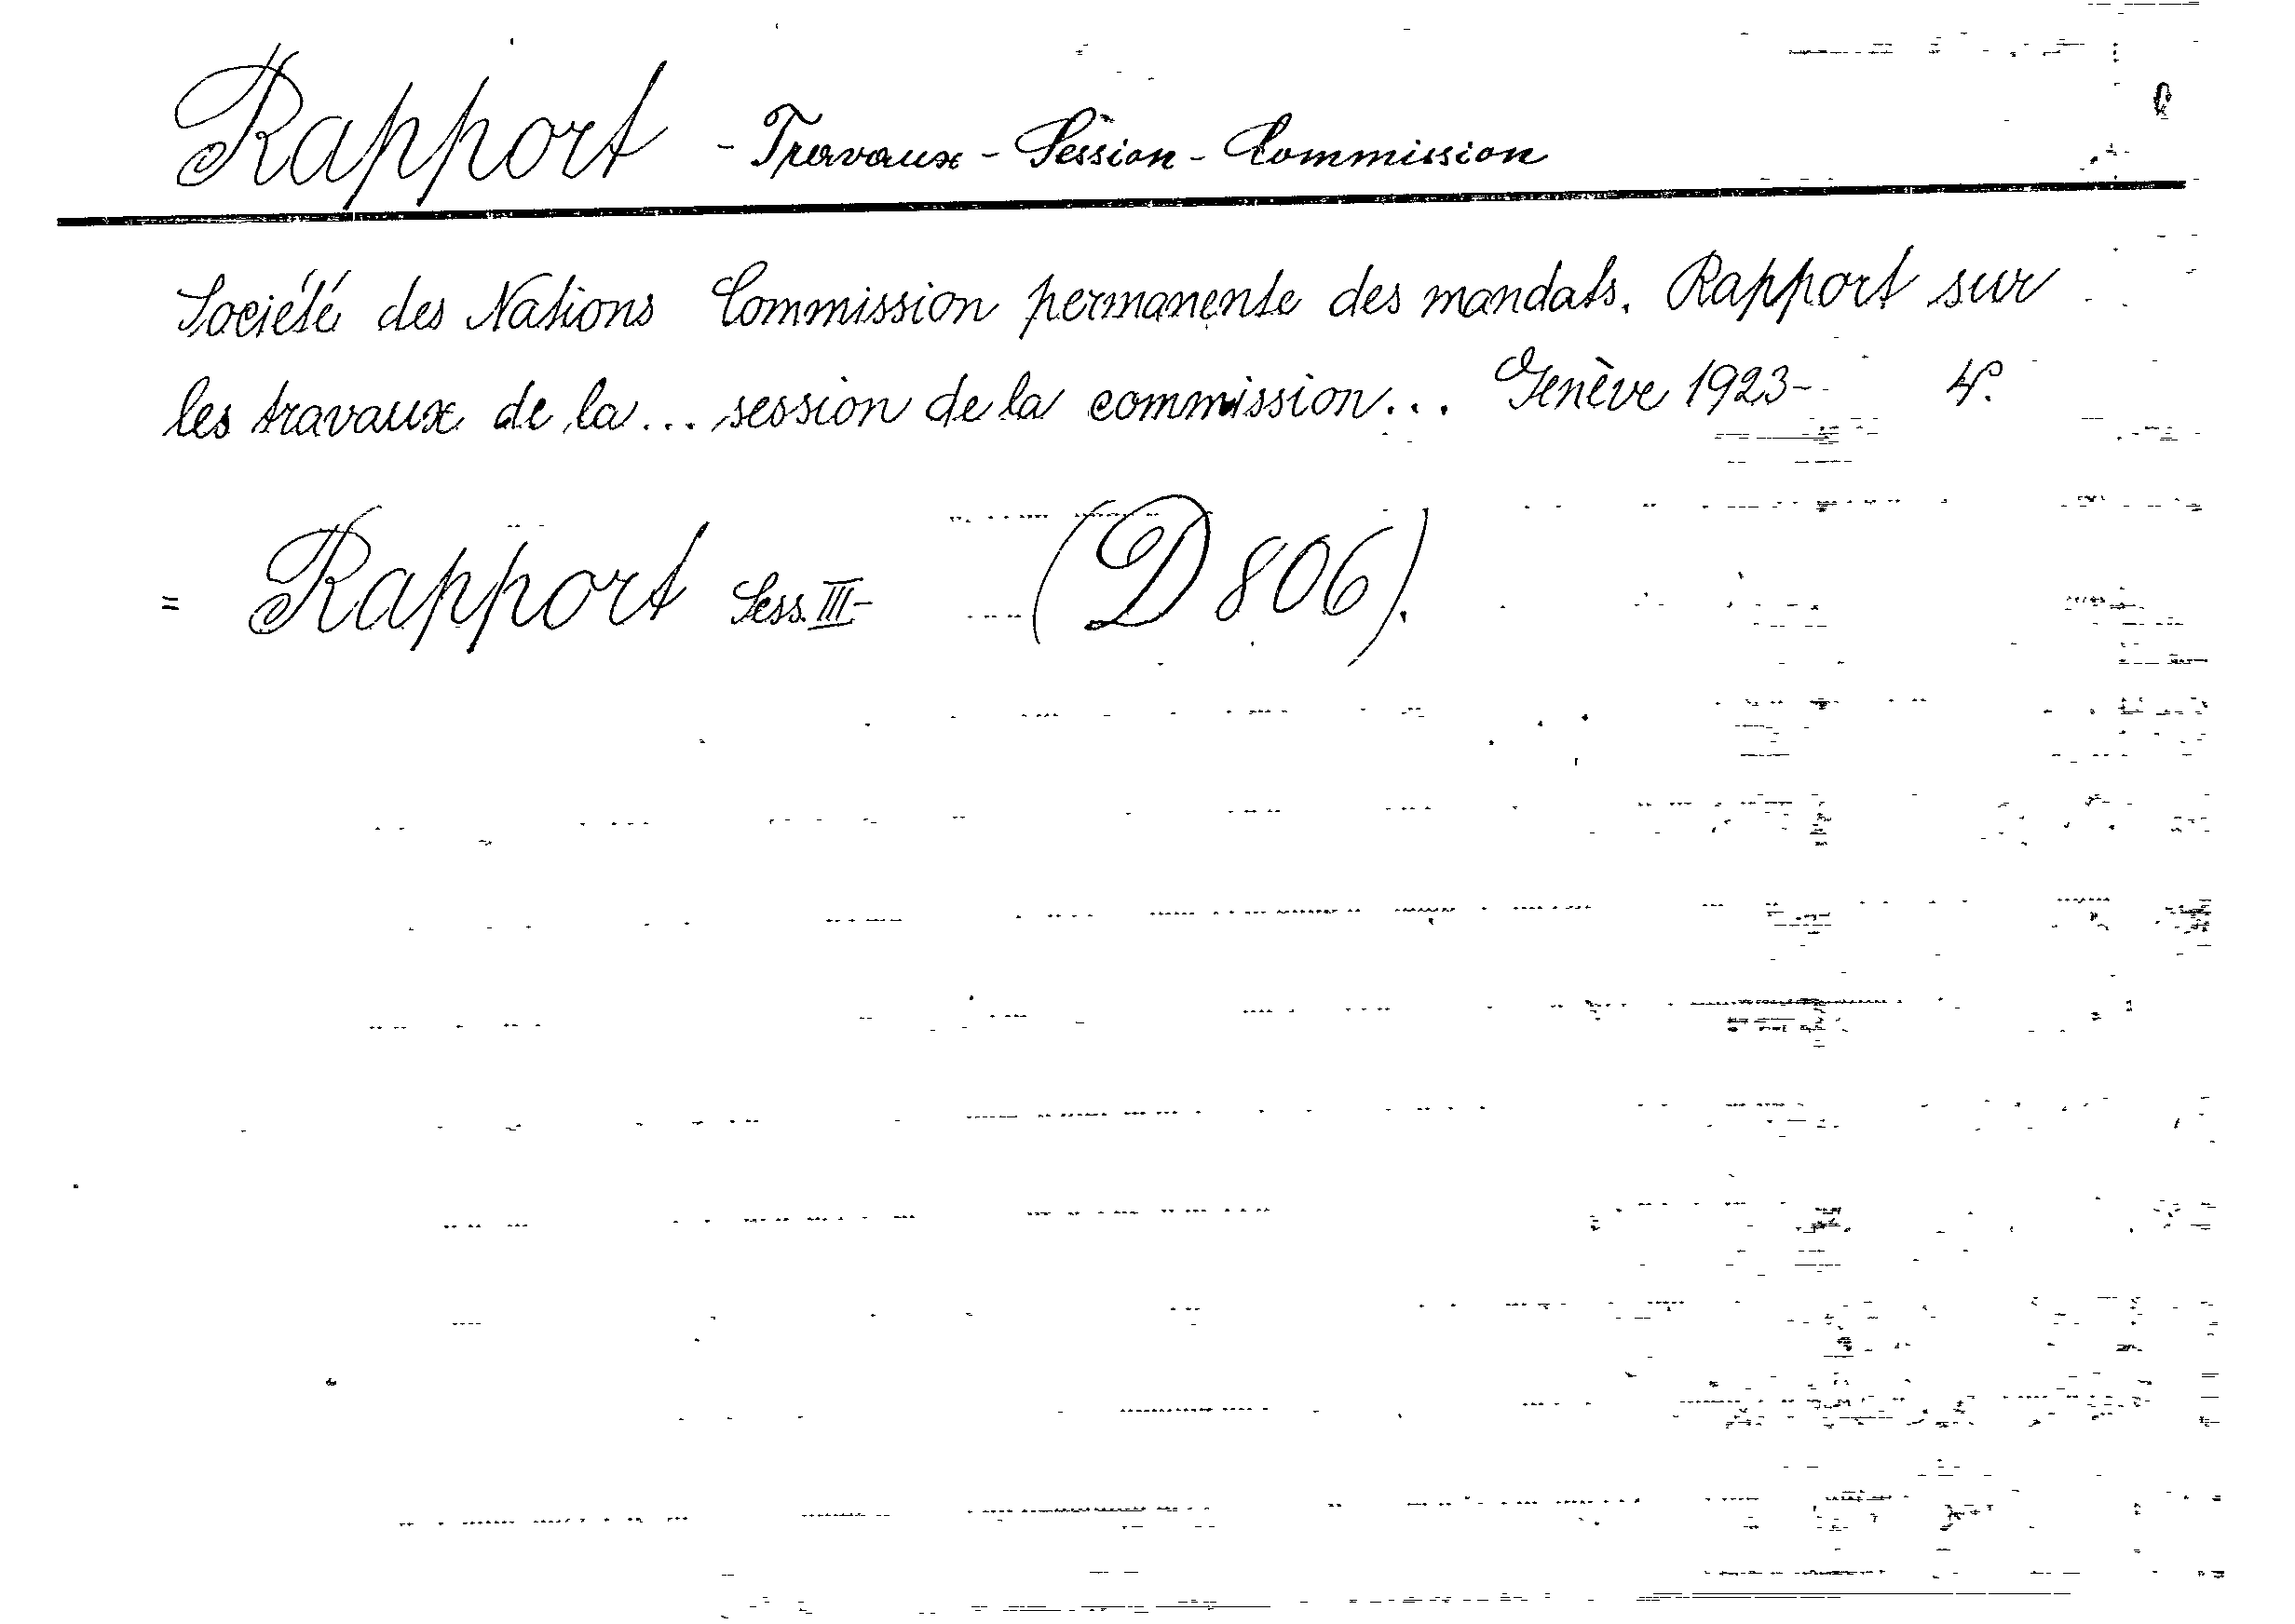 Rapport - Travaux - Session - Commission
Société des Nations Commission permanente des mandats. Rapport sur
les travaux de la ... session de la commission ... Genève 1923- 4°.
= Rapport Sess. III- (D 806).